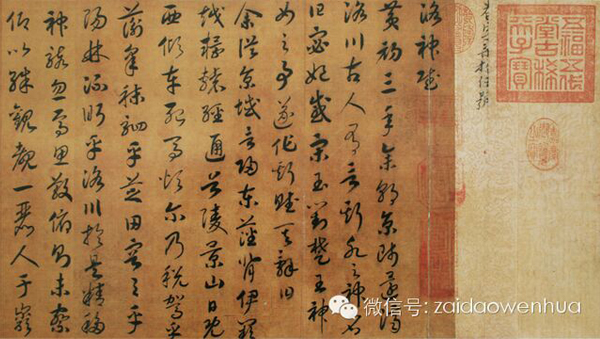 五福五代堂古稀天子寶
洛神賦
黃初三年余朝京師還濟
洛川古人有言斯水之神名
曰宓妃感宋玉對楚王神
女之事遂作斯賦其辭曰
余從京域言歸東藩背伊闕
越轘轅經通谷陵景山日既
西傾車殆馬煩爾乃稅駕乎
蘅皋秣駟乎芝田容與乎
陽林流眄乎洛川於是精移
神駭忽焉思散俯則未察
仰以殊觀覩一麗人于巖
微信号: zaidaowenhua